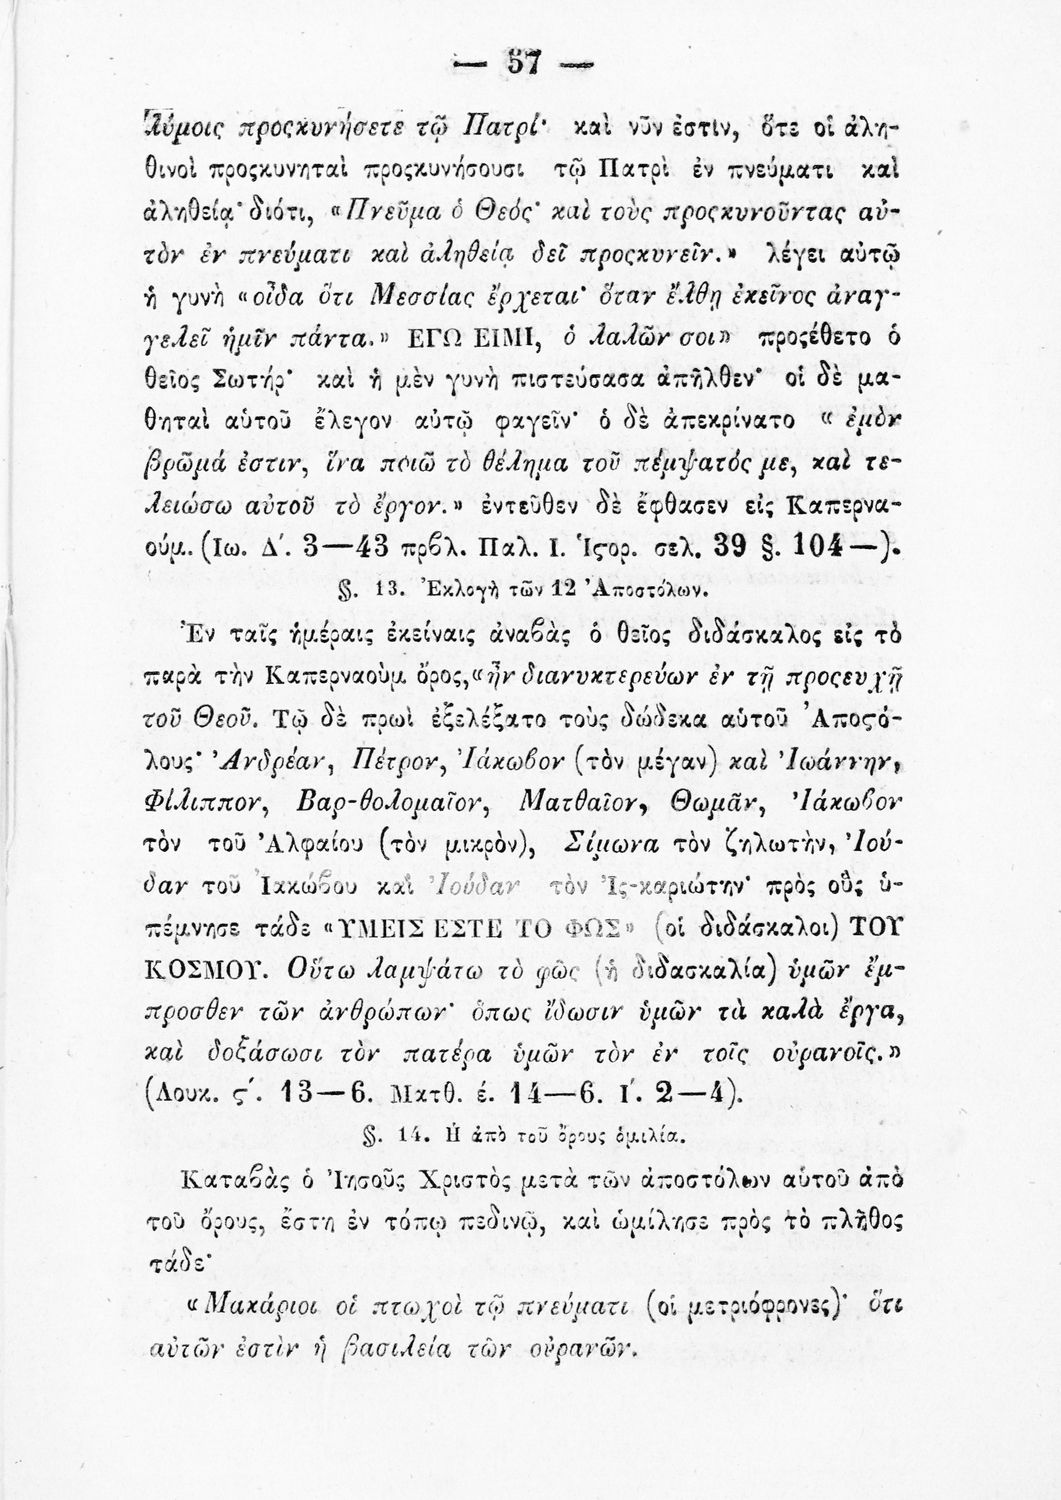 — 57 —
λύμοις προςκυνήσετε τῷ Πατρί· καὶ νῦν ἐστὶν, ὅτε οἱ ἀλη-
θινοὶ προςκυνηταὶ προςκυνήσουσι τῷ Πατρὶ ἐν πνεύματι καὶ
ἀληθείᾳ· διότι, «Πνεῦμα ὁ Θεός· καὶ τοὺς προςκυνοῦντας αὐ-
τὸν ἐν πνεύματι καὶ ἀληθείᾳ δεῖ προςκυνεῖν.» λέγει αὐτῷ
ἡ γυνὴ «οἶδα ὅτι Μεσσίας ἔρχεται· ὅταν ἔλθῃ ἐκεῖνος ἀναγ-
γελεῖ ἡμῖν πάντα.» ΕΓΩ ΕΙΜΙ, ὁ λαλῶν σοι» προςέθετο ὁ
θεῖος Σωτήρ· καὶ ἡ μὲν γυνὴ πιστεύσασα ἀπῆλθεν· οἱ δὲ μα-
θηταὶ αὑτοῦ ἔλεγον αὐτῷ φαγεῖν· ὁ δὲ ἀπεκρίνατο « ἐμὸν
βρῶμά ἐστιν, ἵνα ποιῶ τὸ θέλημα τοῦ πέμψατός με, καὶ τε-
λειώσω αὐτοῦ τὸ ἔργον.» ἐντεῦθεν δὲ ἔφθασεν εἰς Καπερνα-
ούμ. (Ιω. Δ΄. 3—43 πρβλ. Παλ. Ι. Ἱςορ. σελ. 39 §. 104—).
§. 13. Ἐκλογὴ τῶν 12 Ἀποστόλων.
Ἐν ταῖς ἡμέραις ἐκείναις ἀναβὰς ὁ θεῖος διδάσκαλος εἰς τὸ
παρὰ τὴν Καπερναοὺμ ὄρος, «ἦν διανυκτερεύων ἐν τῇ προςευχῇ
τοῦ Θεοῦ. Τῷ δὲ πρωὶ ἐξελέξατο τοὺς δώδεκα αὑτοῦ Ἀποςό-
λους· Ἀνδρέαν, Πέτρον, Ἰάκωβον (τὸν μέγαν) καὶ Ἰωάννην,
Φίλιππον, Βαρ-θολομαῖον, Ματθαῖον, Θωμᾶν, Ἰάκωβον
τὸν τοῦ Ἀλφαίου (τὸν μικρὸν), Σίμωνα τὸν ζηλωτὴν, Ἰού-
δαν τοῦ Ἰακώβου καὶ Ἰούδαν τὸν Ἰς-καριώτην· πρὸς οὓς ὑ-
πέμνησε τάδε «ΥΜΕΙΣ ΕΣΤΕ ΤΟ ΦΩΣ» (οἱ διδάσκαλοι) ΤΟΥ
ΚΟΣΜΟΥ. Οὕτω λαμψάτω τὸ φῶς (ἡ διδασκαλία) ὑμῶν ἔμ-
προσθεν τῶν ἀνθρώπων· ὅπως ἴδωσιν ὑμῶν τὰ καλὰ ἔργα,
καὶ δοξάσωσι τὸν πατέρα ὑμῶν τὸν ἐν τοῖς οὐρανοῖς.»
(Λουκ. ς΄. 13—6. Ματθ. έ. 14—6. Ι΄. 2—4).
§. 14. Η ἀπὸ τοῦ ὄρους ὁμιλία.
Καταβὰς ὁ Ἰησοῦς Χριστὸς μετὰ τῶν ἀποστόλων αὑτοῦ ἀπὸ
τοῦ ὄρους, ἔστη ἐν τόπῳ πεδινῷ, καὶ ὡμίλησε πρὸς τὸ πλῆθος
τάδε·
«Μακάριοι οἱ πτωχοὶ τῷ πνεύματι (οἱ μετριόφρονες)· ὅτι
αὐτῶν ἐστὶν ἡ βασιλεία τῶν οὐρανῶν.